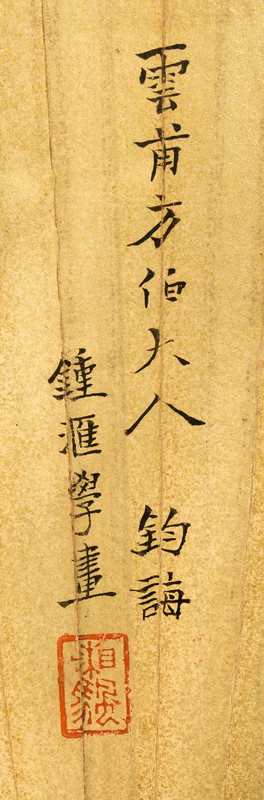 雲甫方伯大人 鈞誨
鍾滙學畫